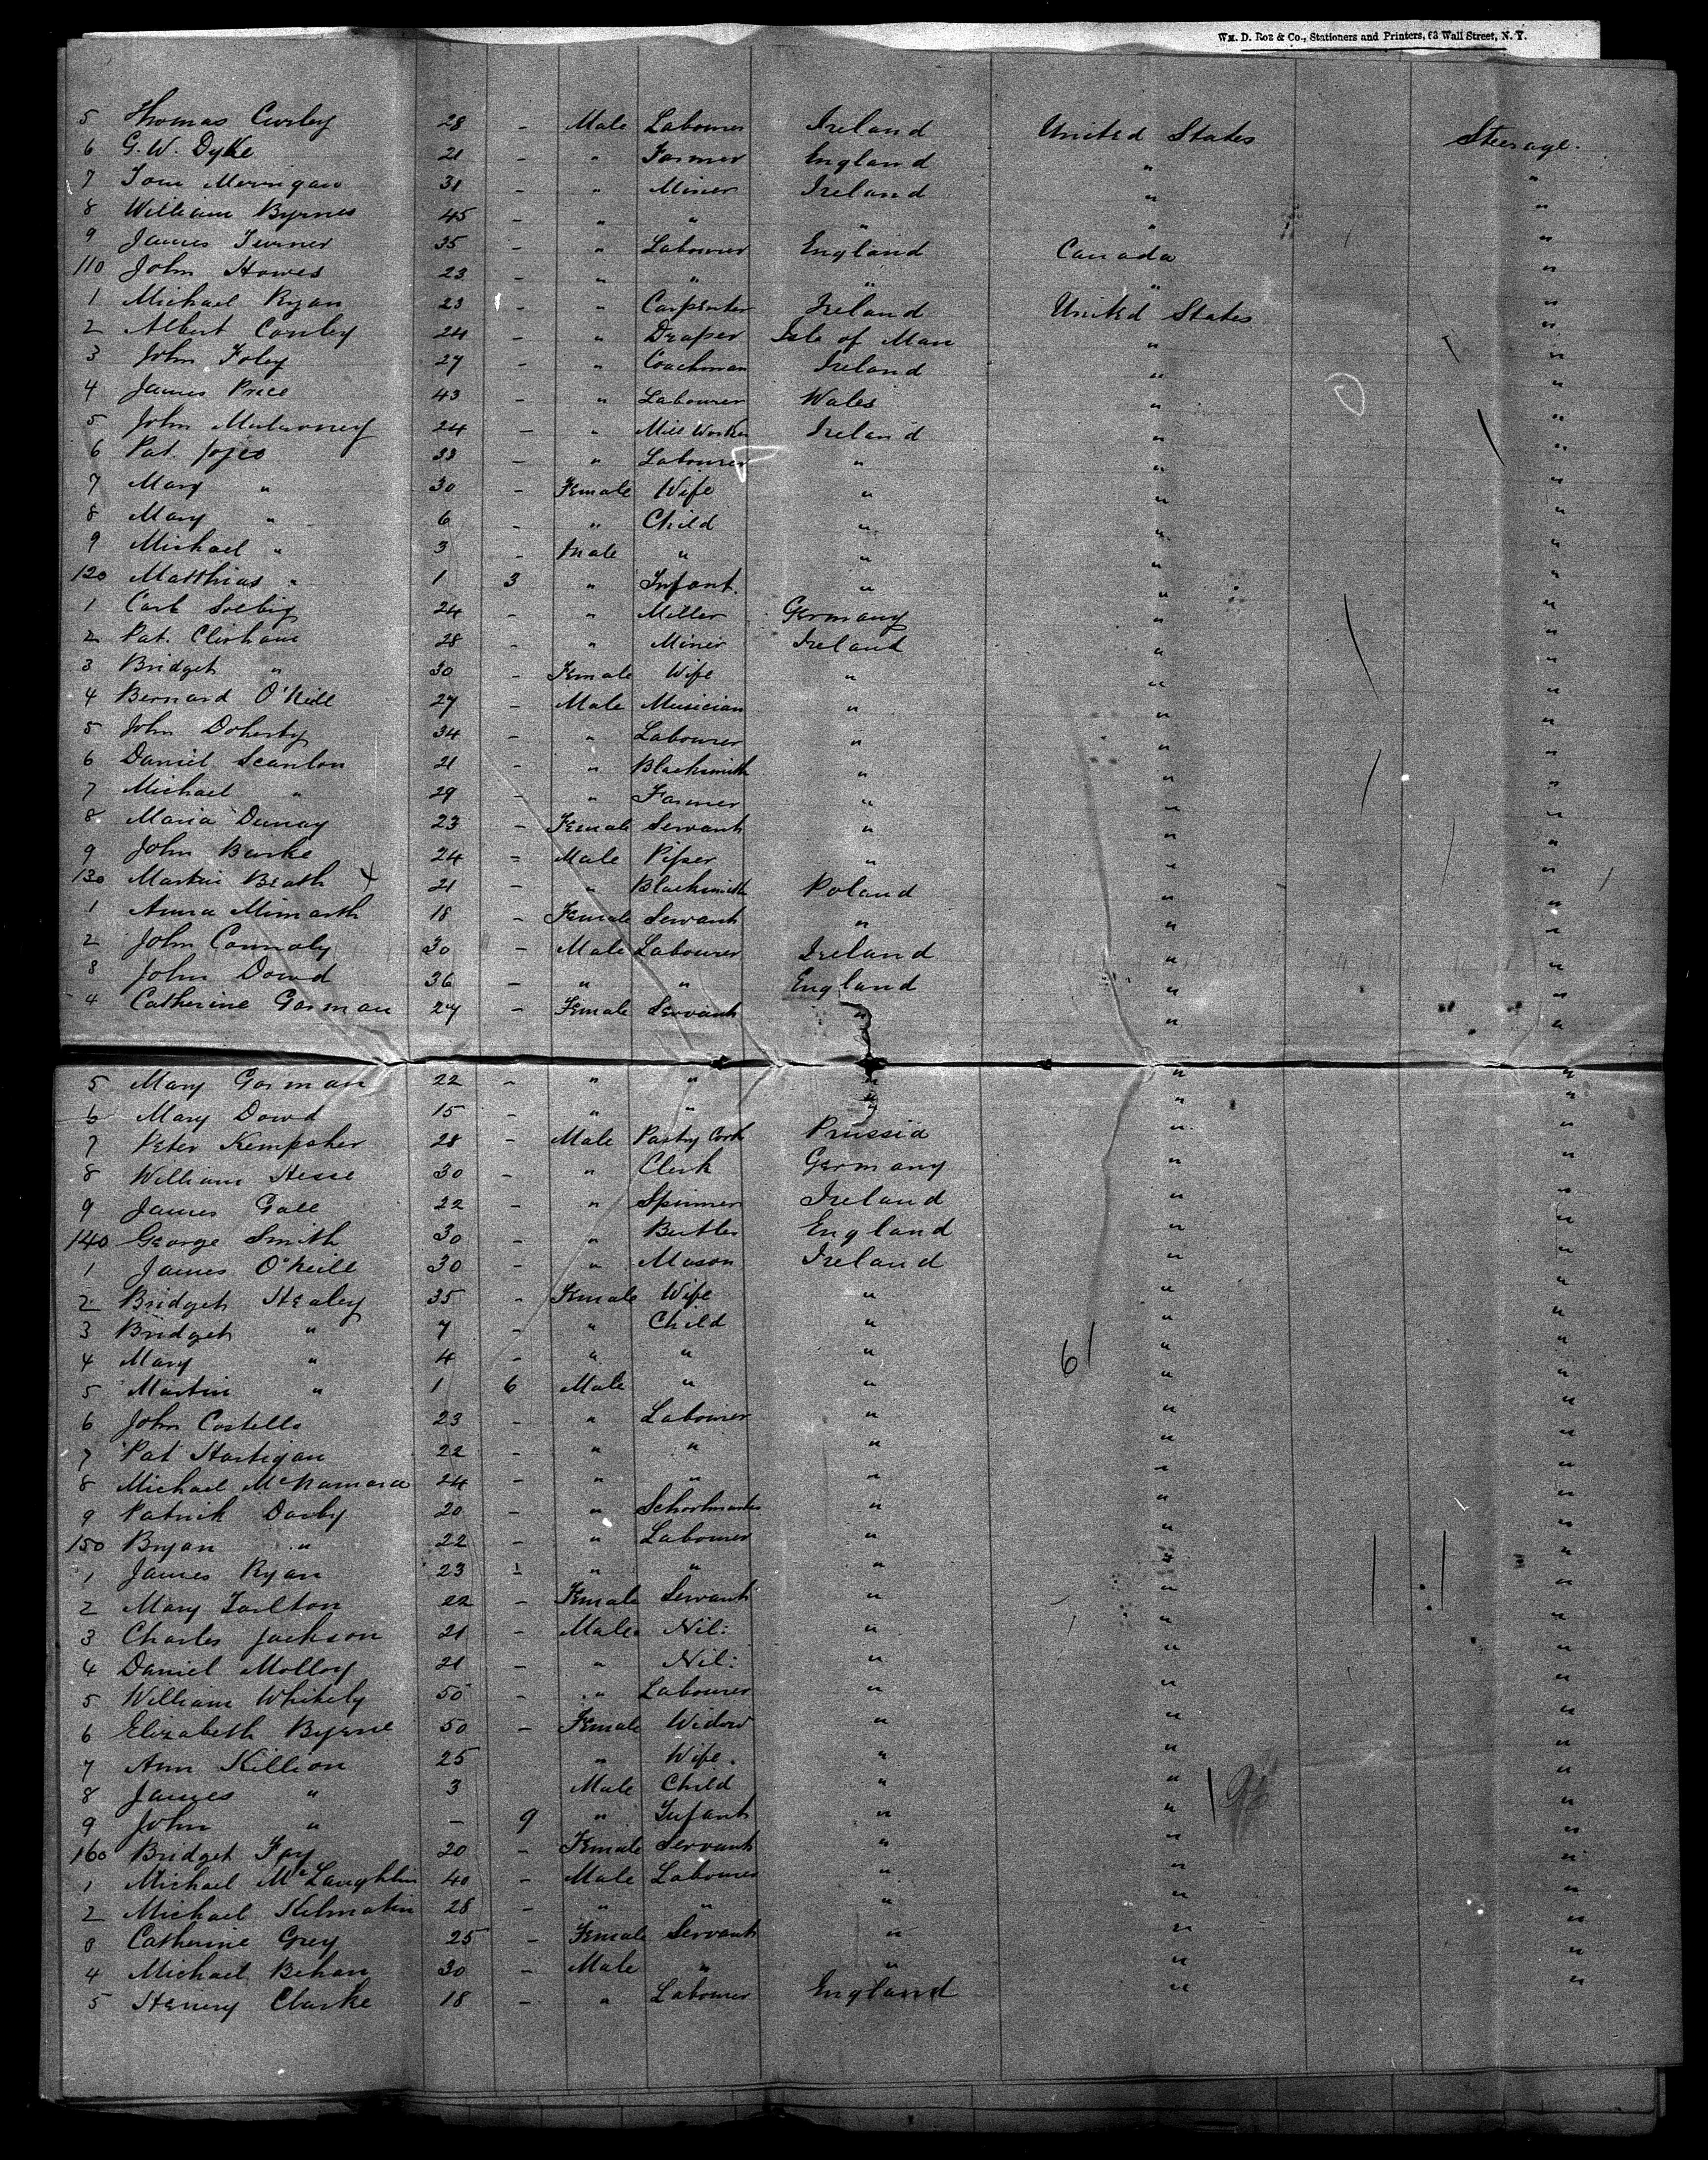 Wm. D. Roe & Co., Stationers and Printers, 63 Wall Street, N. Y.
5 Thomas Curley 28 - Male Labourer Ireland United States Steerage.
6 G. W. Dyke 21 - " Farmer England " "
7 Tom Merrigan 31 - " Miner Ireland " "
8 William Byrnes 45 - " " " " "
9 James Turner 35 - " Labourer England Canada "
110 John Howes 23 - " " " " "
1 Michael Ryan 23 " Carpenter Ireland United States "
2 Albert Conley 24 - " Draper Isle of Man " "
3 John Foley 27 - " Coachman Ireland " "
4 James Price 43 - " Labourer Wales " "
5 John Mularney 24 - " Mill Worker Ireland " "
6 Pat. Joyce 33 - " Labourer " " "
7 Mary " 30 - Female Wife " " "
8 Mary " 6 - " Child " " "
9 Michael " 3 - Male " " " "
120 Matthias " 1 3 " Infant. " " "
1 Carl 24 - " Miller Germany " "
2 Pat. 28 - " Miner Ireland " "
3 Bridget " 30 - Female Wife " " "
4 Bernard O'Neill 27 - Male Musician " " "
5 John Doherty 34 - " Labourer " " "
6 Daniel Scanlon 21 - " Blacksmith " " "
7 Michael " 29 - " Farmer " " "
8 Maria 23 - Female Servant " " "
9 John Burke 24 - Male Piper " " "
130 Martin Brath x 21 - " Blacksmith Poland " "
1 Anna 18 - Female Servant " " "
2 John Connoly 30 - Male Labourer Ireland " "
3 John Dowd 36 - " " England " "
4 Catherine Gorman 27 - Female Servant " " "
5 Mary Gorman 22 - " " " " "
6 Mary Dowd 15 - " " " " "
7 Peter Kempsher 28 - Male Pastry Cook Prussia " "
8 William Hesse 30 - " Clerk Germany " "
9 James Gall 22 - " Spinner Ireland " "
140 George Smith 30 - " Butler England " "
1 James O'Neill 30 - " Mason Ireland " "
2 Bridget Healey 35 - Female Wife " " "
3 Bridget " 7 - " Child " " "
4 Mary " 4 - " " " 61 " "
5 Martin " 1 6 Male " " " "
6 John Costello 23 - " Labourer " " "
7 Pat Hartigan 22 - " " " " "
8 Michael McNamara 24 - " " " " "
9 Patrick Darby 20 - " Schoolmaster " " "
150 Bryan " 22 - " Labourer " " "
1 James Ryan 23 - " " " " "
2 Mary Tarlton 22 - Female Servant " " "
3 Charles Jackson 21 - Male Nil: " " "
4 Daniel Molloy 21 - " Nil: " " "
5 William Whitely 50 - " Labourer " " "
6 Elizabeth Byrne 50 - Female Widow " " "
7 Ann Killion 25 " Wife. " " "
8 James " 3 Male Child " " "
9 John " - 9 " Infant " " "
160 Bridget Fay 20 - Female Servant " " "
1 Michael McLaughlin 40 - Male Labourer " " "
2 Michael Kilmatin 28 - " " " " "
3 Catherine Grey 25 - Female Servant " " "
4 Michael Behan 30 - Male " " " "
5 Henery Clarke 18 - " Labourer England " "